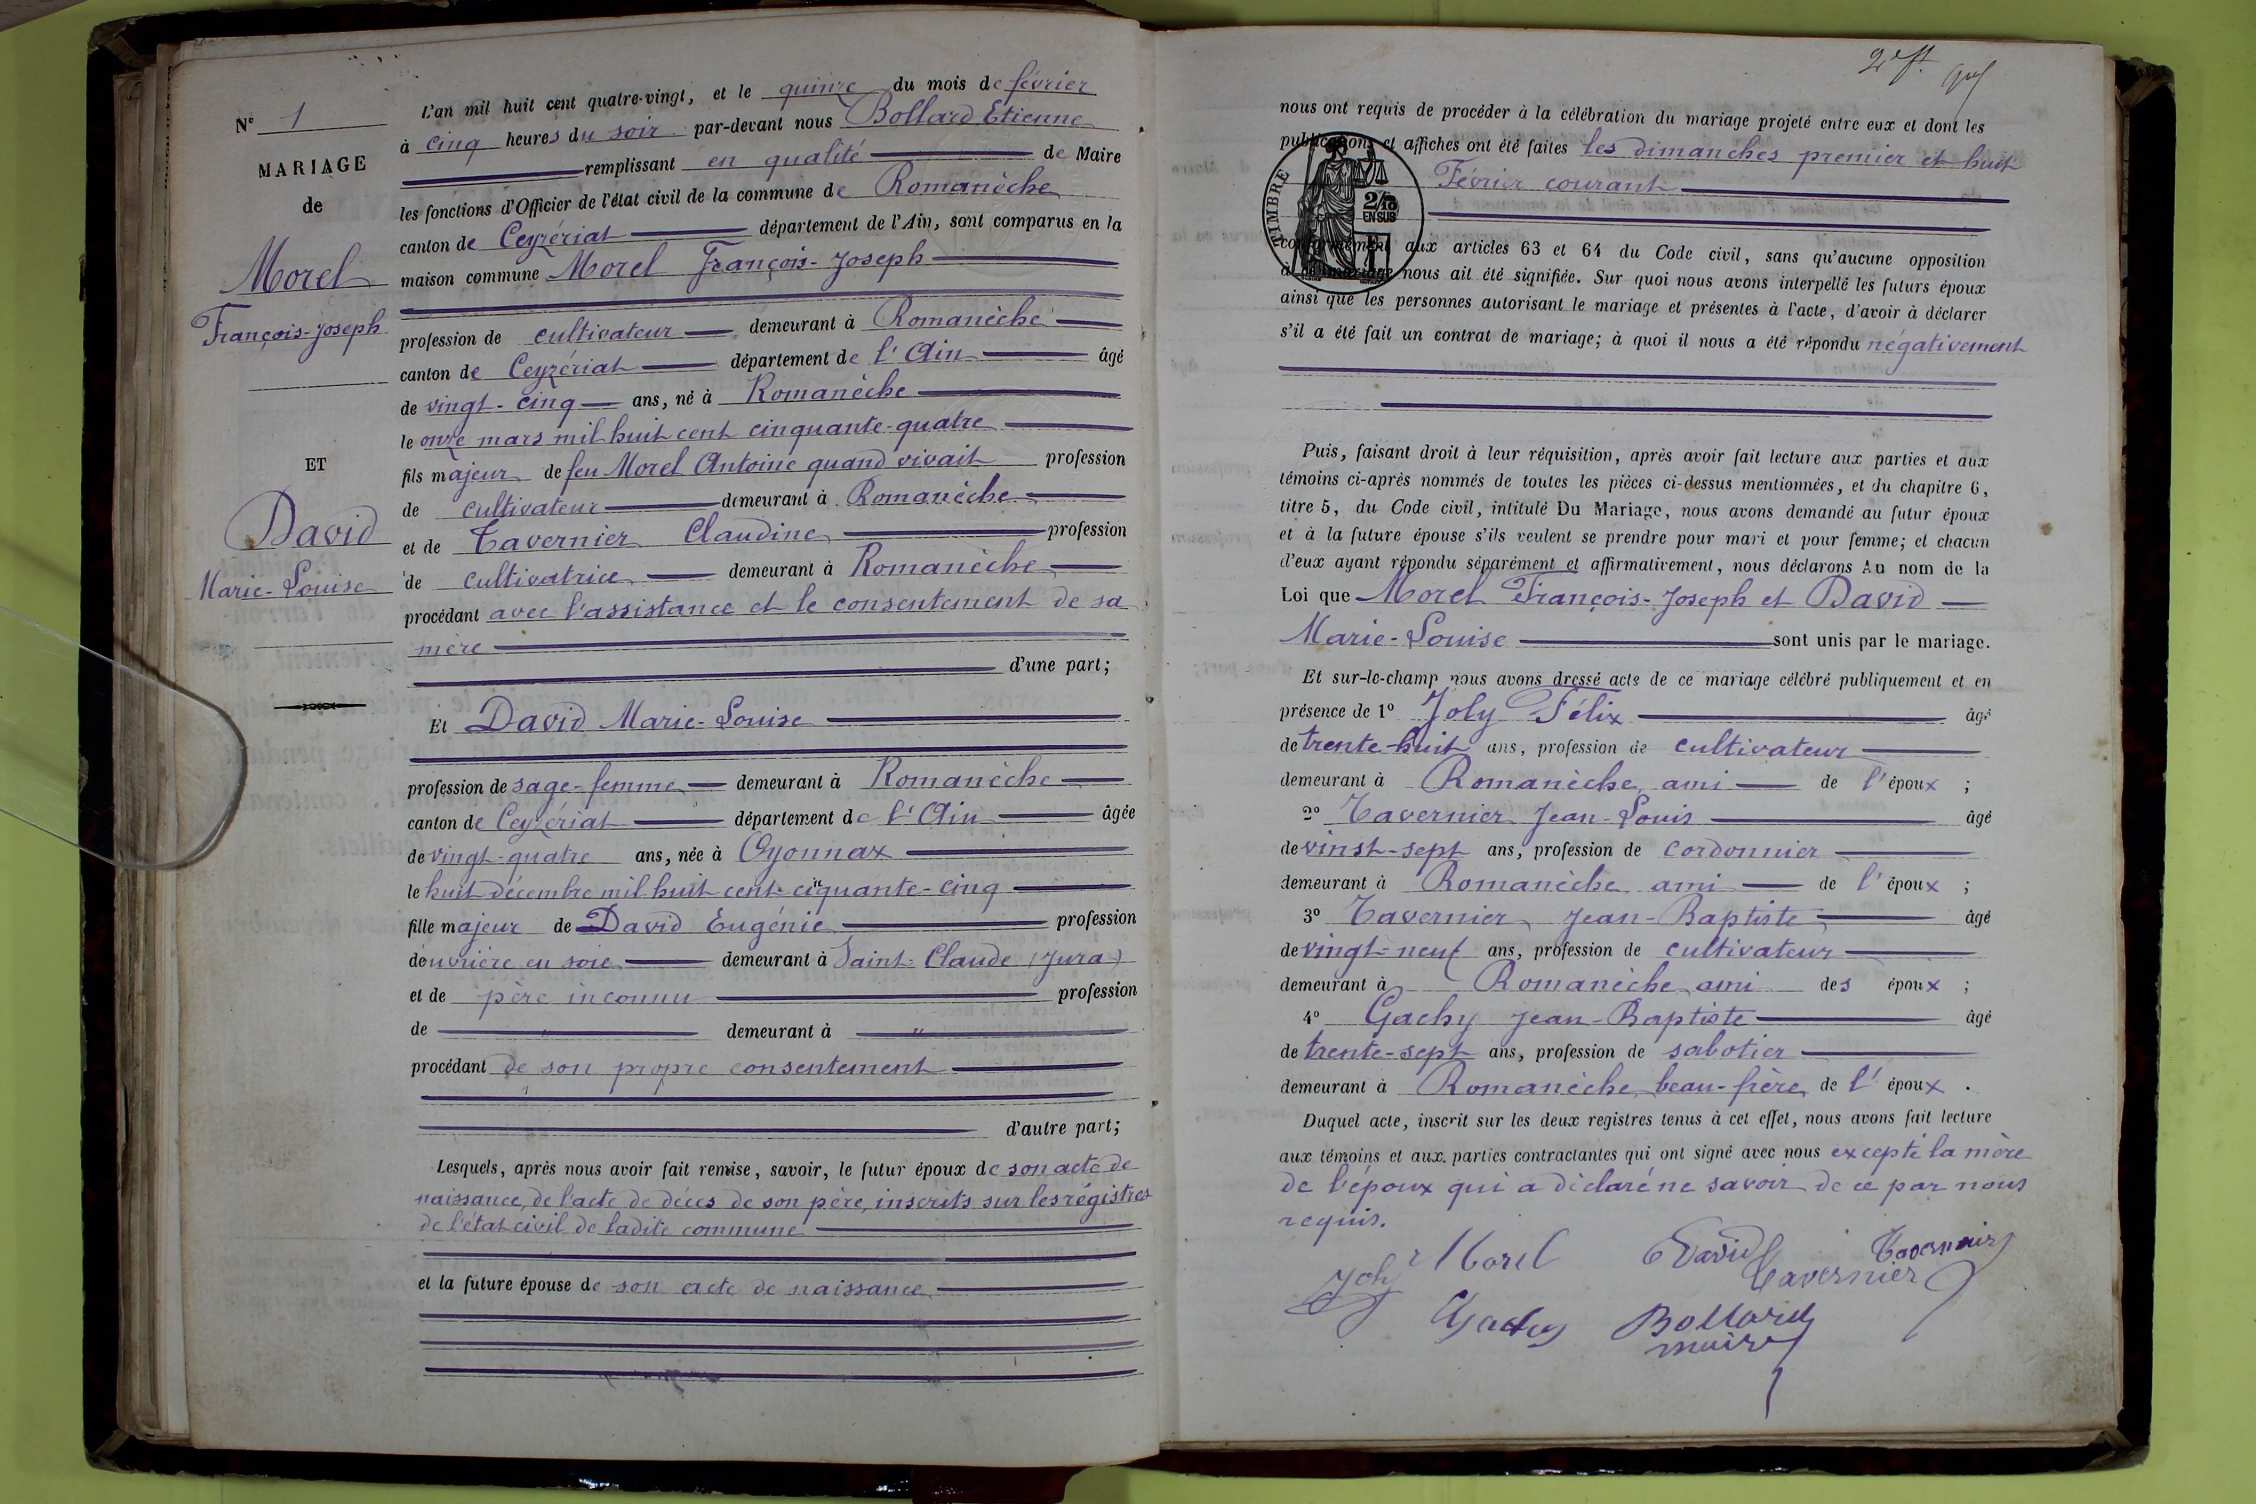 N° 1
MARIAGE
de
Morel
François-Joseph
ET
David
Marie-Louise
L'an mil huit cent quatre-vingt, et le quinze du mois de février
à cinq heures du soir par-devant nous Bollard Etienne
remplissant en qualité de Maire
les fonctions d'Officier de l'état civil de la commune de Romanèche
canton de Ceyzériat département de l'Ain, sont comparus en la
maison commune Morel François-Joseph
profession de cultivateur demeurant à Romanèche
canton de Ceyzériat département de l'Ain âgé
de vingt-cinq ans, né à Romanèche
le onze mars mil huit cent cinquante-quatre
fils majeur de feu Morel Antoine quand vivait profession
de cultivateur demeurant à Romanèche
et de Tavernier Claudine profession
de cultivatrice demeurant à Romanèche
procédant avec l'assistance et le consentement de sa
mère
d'une part;
Et David Marie-Louise
profession de sage-femme demeurant à Romanèche
canton de Ceyzériat département de l'Ain âgée
de vingt-quatre ans, née à Oyonnax
le huit décembre mil huit cent cinquante-cinq
fille majeur de David Eugénie profession
d'ouvrière en soie demeurant à Saint-Claude (Jura)
et de père inconnu profession
de " demeurant à "
procédant de son propre consentement
d'autre part;
Lesquels, après nous avoir fait remise, savoir, le futur époux de son acte de
naissance, de l'acte de décès de son père, inscrits sur les régistres
de l'état civil de ladite commune
et la future épouse de son acte de naissance
2e ft.
nous ont requis de procéder à la célébration du mariage projeté entre eux et dont les
publications et affiches ont été faites les dimanches premier et huit
Février courant
TIMBRE
2/10
EN SUS
conformément aux articles 63 et 64 du Code civil, sans qu'aucune opposition
à ce mariage nous ait été signifiée. Sur quoi nous avons interpellé les futurs époux
ainsi que les personnes autorisant le mariage et présentes à l'acte, d'avoir à déclarer
s'il a été fait un contrat de mariage; à quoi il nous a été répondu négativement
Puis, faisant droit à leur réquisition, après avoir fait lecture aux parties et aux
témoins ci-après nommés de toutes les pièces ci-dessus mentionnées, et du chapitre 6,
titre 5, du Code civil, intitulé Du Mariage, nous avons demandé au futur époux
et à la future épouse s'ils veulent se prendre pour mari et pour femme; et chacun
d'eux ayant répondu séparément et affirmativement, nous déclarons Au nom de la
Loi que Morel François-Joseph et David
Marie-Louise sont unis par le mariage.
Et sur-le-champ nous avons dressé acte de ce mariage célébré publiquement et en
présence de 1° Joly Félix âgé
de trente-huit ans, profession de cultivateur
demeurant à Romanèche ami de l'époux ;
2° Tavernier Jean-Louis âgé
de vinst-sept ans, profession de cordonnier
demeurant à Romanèche ami de l'époux ;
3° Tavernier Jean-Baptiste âgé
de vingt-neuf ans, profession de cultivateur
demeurant à Romanèche ami des époux ;
4° Gachy Jean-Baptiste âgé
de trente-sept ans, profession de sabotier
demeurant à Romanèche beau-frère de l'époux .
Duquel acte, inscrit sur les deux registres tenus à cet effet, nous avons fait lecture
aux témoins et aux parties contractantes qui ont signé avec nous excepté la mère
de l'époux qui a déclaré ne savoir de ce par nous
requis.
Morel David Tavernier
Joly Tavernier
Gachy Bollard
maire